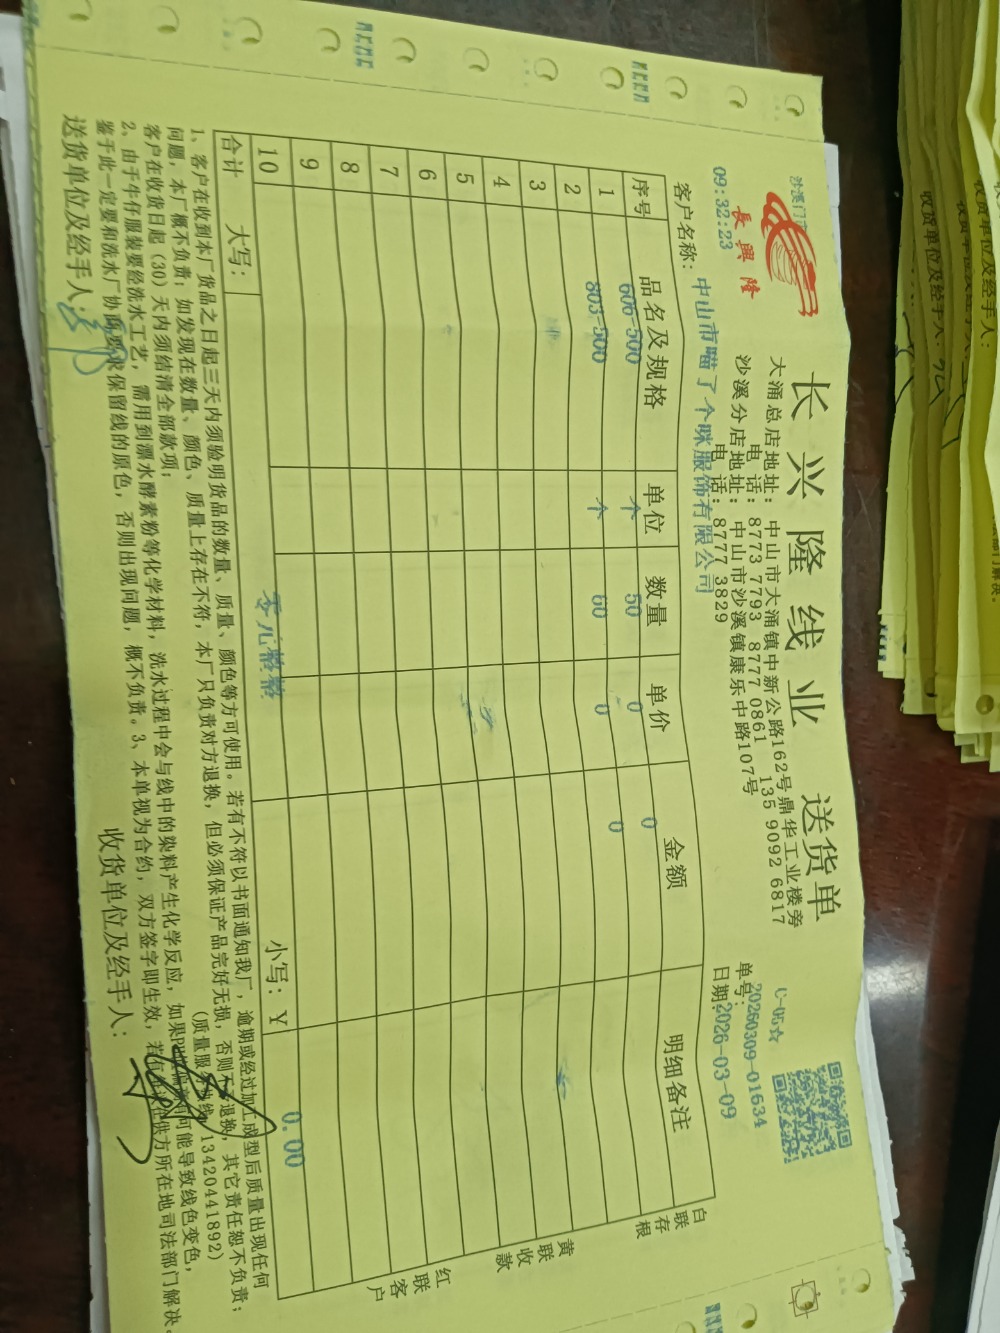 長興隆
长兴隆线业 送货单
沙溪门
09:32:23
大涌总店地址：中山市大涌镇中新公路162号鼎华工业楼旁
电话：8773 7793 8777 0861 135 9092 6817
沙溪分店地址：中山市沙溪镇康乐中路107号
电话：8777 3829
C-05☆
单号：20260309-01634
日期：2026-03-09
客户名称：中山市喵了个咪服饰有限公司
序号 品名及规格 单位 数量 单价 金额 明细备注
1 606-500 个 50 0 0
2 803-500 个 60 0 0
3
4
5
6
7
8
9
10
合计 大写：零元整整 小写：¥ 0.00
白联存根
黄联收款
红联客户
1、客户在收到本厂货品之日起三天内须验明货品的数量、质量、颜色等方可使用。若有不符以书面通知我厂，逾期或经过加工成型后质量出现任何
问题，本厂概不负责；如发现在数量、颜色、质量上存在不符，本厂只负责对方退换，但必须保证产品完好无损，否则不退换，其它责任恕不负责；
客户在收货日起（30）天内须结清全部款项； （质量服务热线：13420441892）
2、由于牛仔服装要经洗水工艺，需用到漂水酵素粉等化学材料，洗水过程中会与线中的染料产生化学反应，如果PH值偏高有可能导致线色变色，
鉴于此一定要和洗水厂协商要求保留线的原色，否则出现问题，概不负责。3、本单视为合约，双方签字即生效，若有 供方所在地司法部门解决。
送货单位及经手人： 收货单位及经手人：
收货单位及经手人：
收货单位及经手人：
收货单位及经手人：